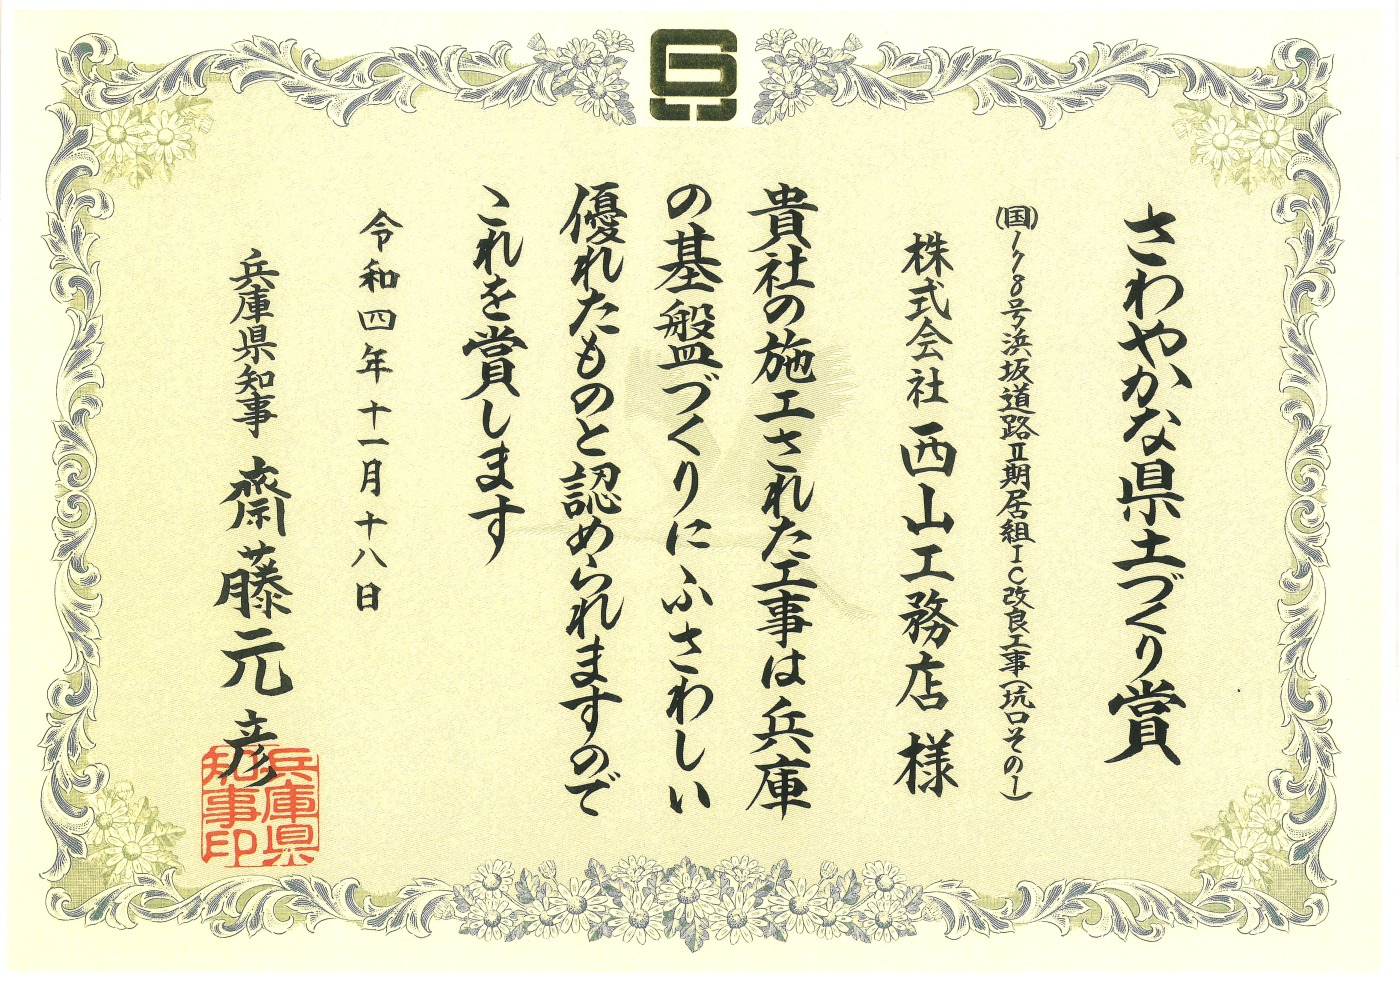 さわやかな県土づくり賞
(国)178号浜坂道路Ⅱ期居組IC改良工事(坑口その1)
株式会社 西山工務店 様
貴社の施工された工事は兵庫
の基盤づくりにふさわしい
優れたものと認められますので
これを賞します
令和四年十一月十八日
兵庫県知事 齋藤元彦
兵庫県
知事印